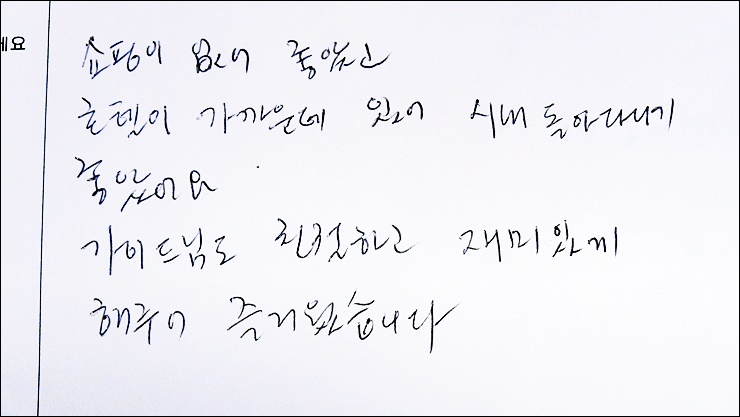 세요
쇼핑이 없어 좋았고
호텔이 가까운데 있어 시내 돌아다니기
좋았어요
가이드님도 친절하고 재미있게
해주어 즐거웠습니다